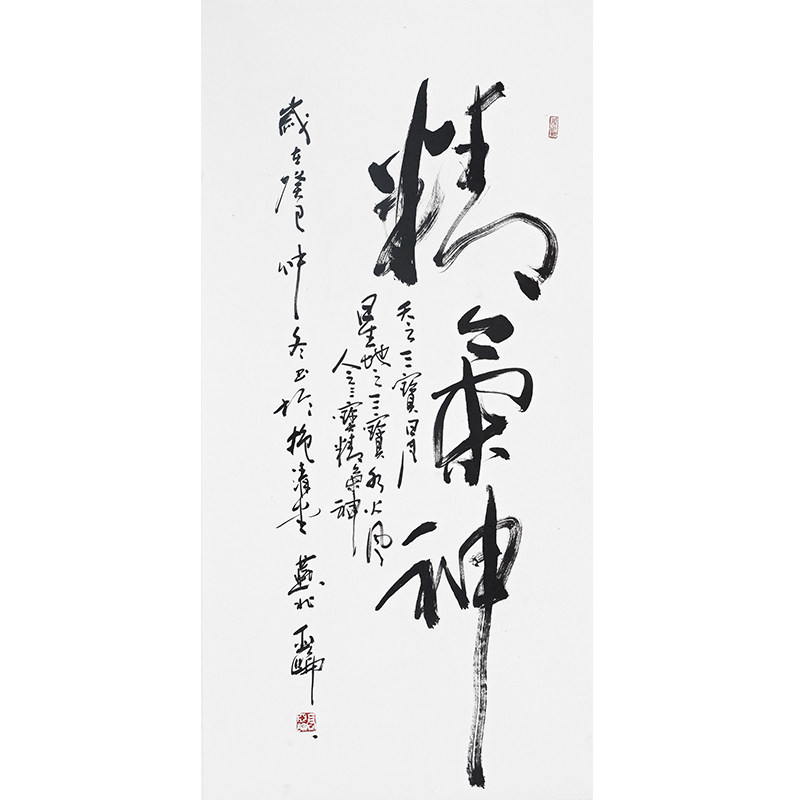 精氣神
天之三寶日月
星地之三寶水火風
人之三寶精氣神
歲在癸巳仲冬书於清堂 燕北